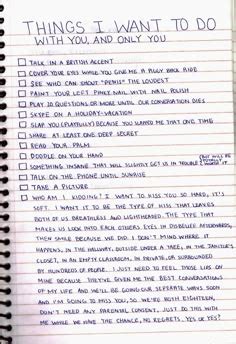 THINGS I WANT TO DO
WITH YOU, AND ONLY YOU
TALK IN A BRITISH ACCENT
COVER YOUR EYES WHILE YOU GIVE ME A PIGGY BACK RIDE
SEE WHO CAN SHOUT "PENIS" THE LOUDEST
PAINT YOUR LEFT PINKY NAIL WITH NAIL POLISH
PLAY 20 QUESTIONS OR MORE UNTIL OUR CONVERSATION DIES
SKYPE ON A HOLIDAY-VACATION
SLAP YOU (PLAYFULLY) BECAUSE YOU SLAPPED ME THAT ONE TIME
SHARE AT LEAST ONE DEEP SECRET
READ YOUR PALM
DOODLE ON YOUR HAND
SOMETHING INSANE THAT WILL SLIGHTLY GET US IN TROUBLE (BUT WILL BE TOTALLY WORTH IT)
TALK ON THE PHONE UNTIL SUNRISE
TAKE A PICTURE
WHO AM I KIDDING? I WANT TO KISS YOU SO HARD, IT'S
SOFT. I WANT IT TO BE THE TYPE OF KISS THAT LEAVES
BOTH OF US BREATHLESS AND LIGHTHEADED. THE TYPE THAT
MAKES US LOOK INTO EACH OTHERS EYES IN DISBELIEF AFTERWARDS,
THEN SMILE BECAUSE WE DID. I DON'T MIND WHERE IT
HAPPENS, IN THE HALLWAY, OUTSIDE UNDER A TREE, IN THE JANITOR'S
CLOSET, IN AN EMPTY CLASSROOM, IN PRIVATE, OR SURROUNDED
BY HUNDREDS OF PEOPLE. I JUST NEED TO FEEL THOSE LIPS ON
MINE BECAUSE THEY'VE GIVEN ME THE BEST CONVERSATIONS OF
MY LIFE AND WE'LL BE GOING OUR SEPARATE WAYS SOON
AND I'M GOING TO MISS YOU, SO WE'RE BOTH EIGHTEEN,
DON'T NEED ANY PARENTAL CONSENT, JUST DO THIS WITH
ME WHILE WE HAVE THE CHANCE, NO REGRETS, YES OR YES?